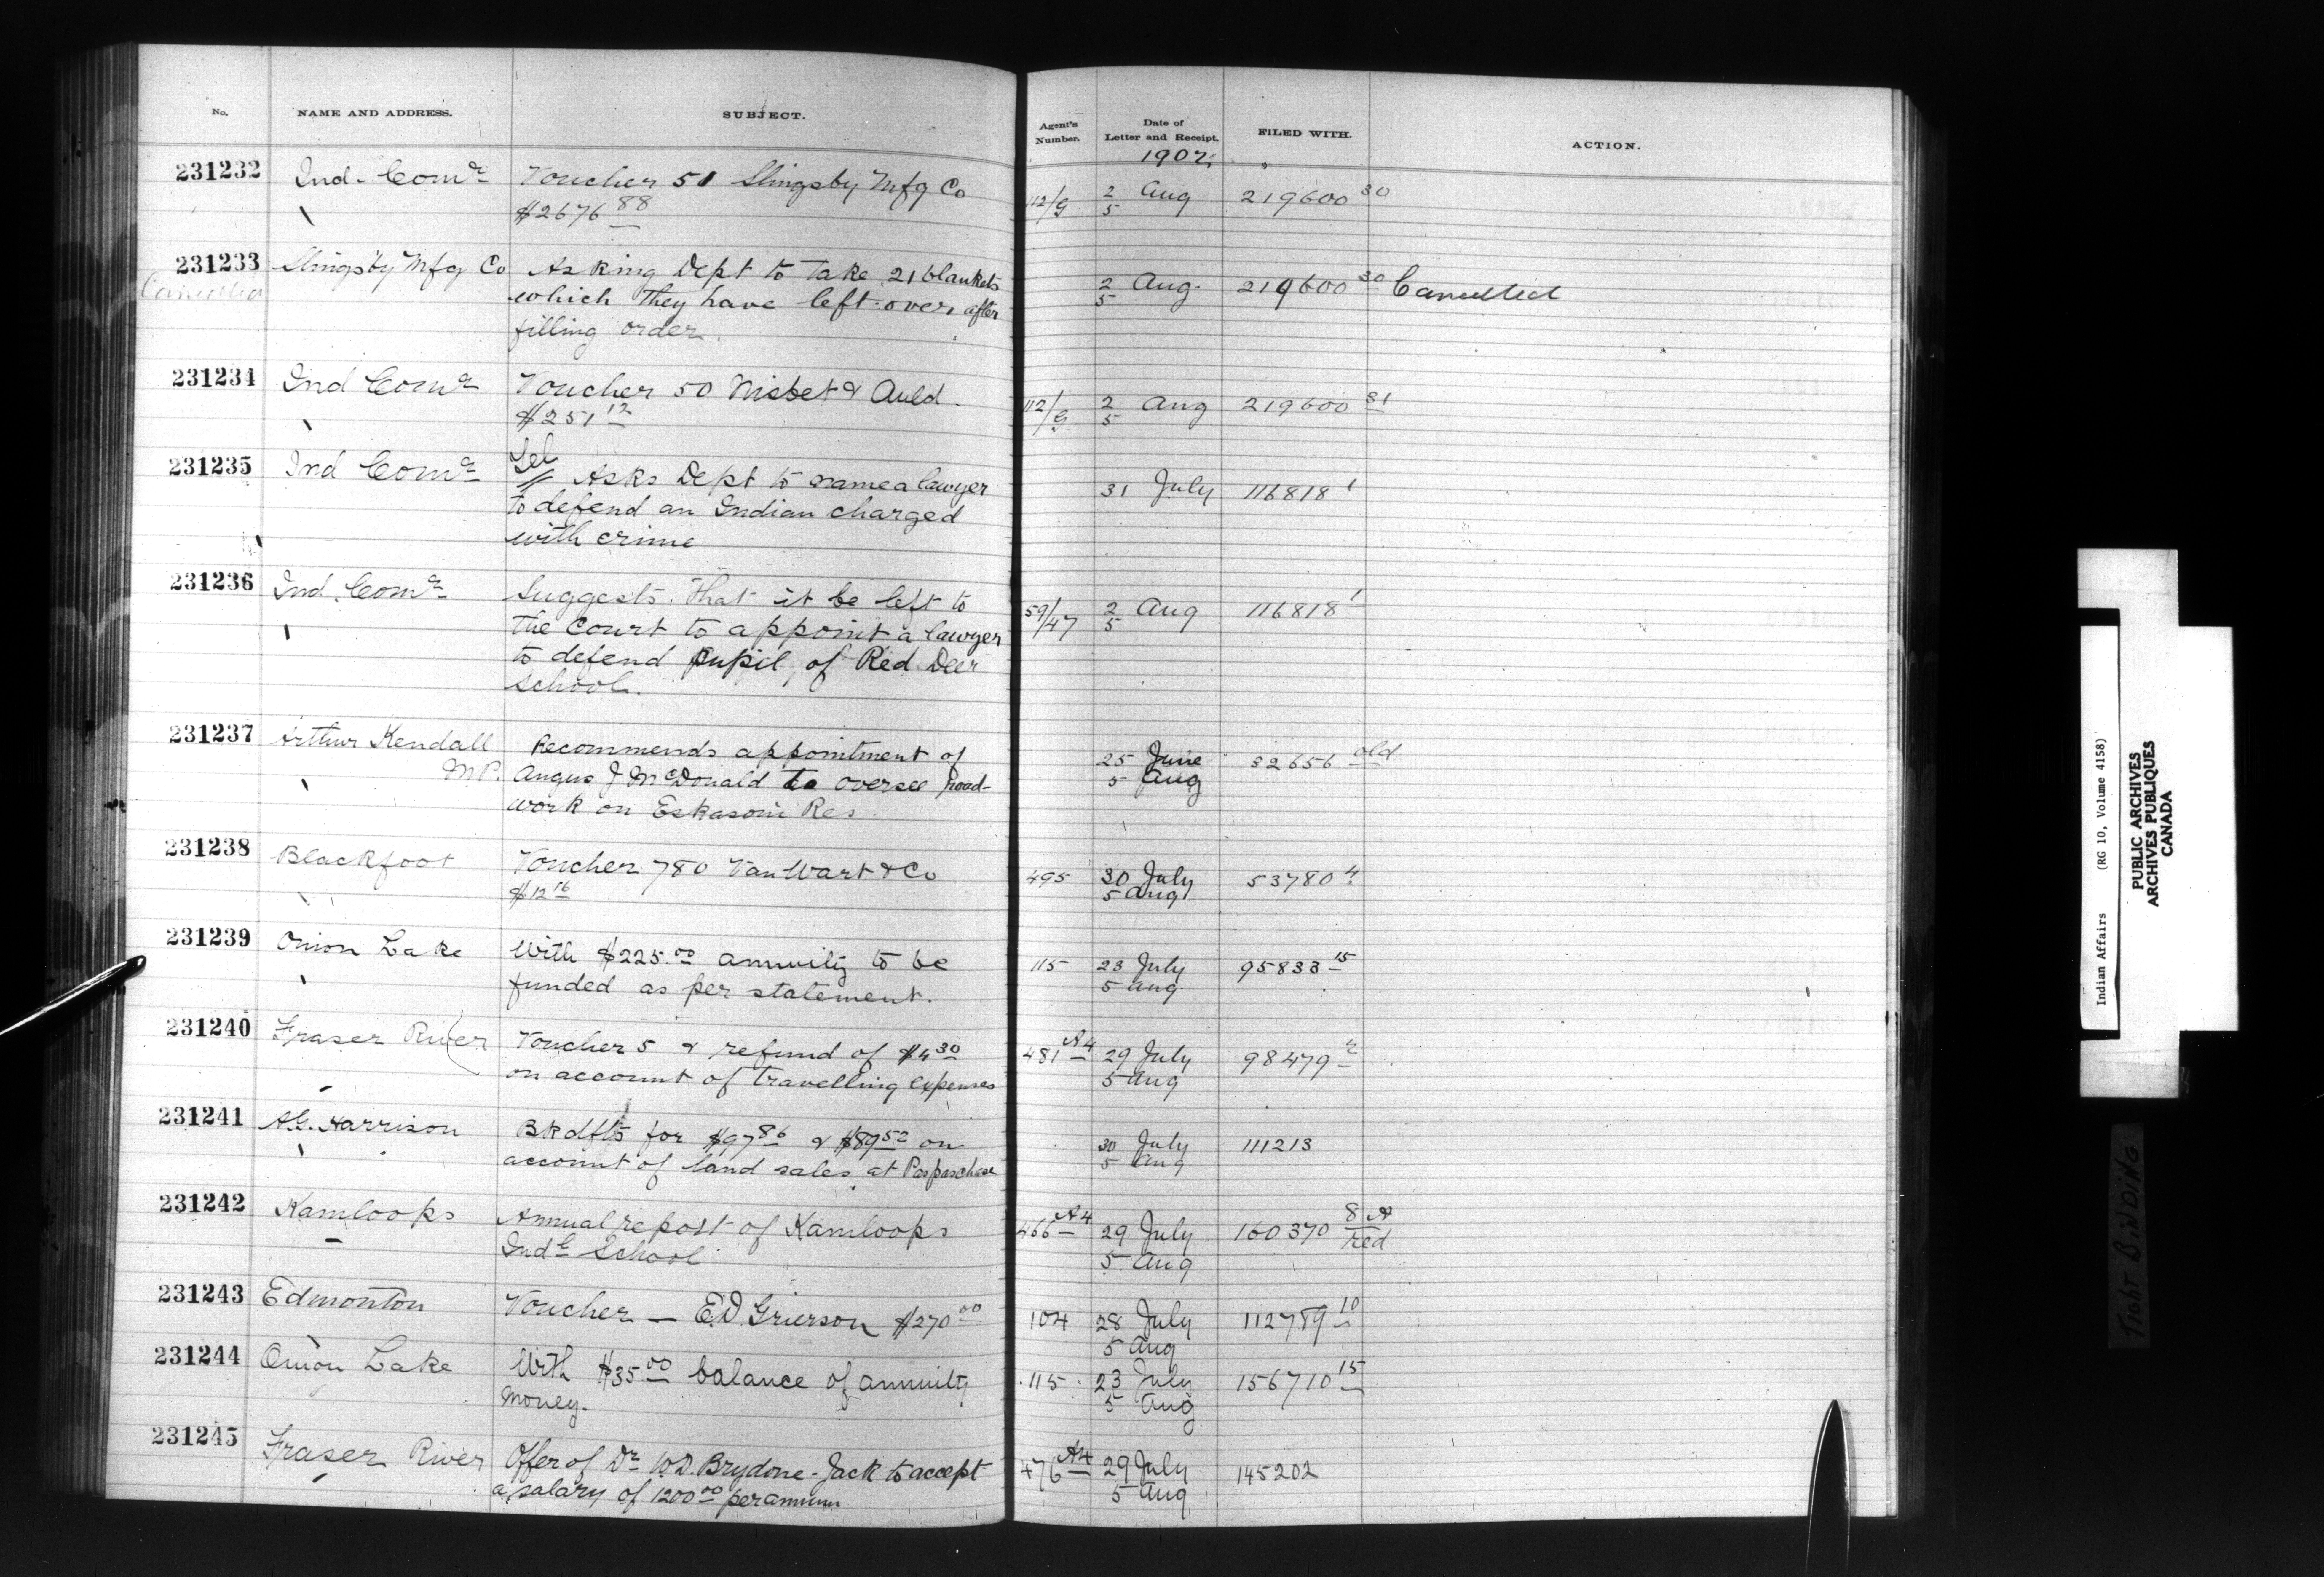 No. NAME AND ADDRESS. SUBJECT. Agent's Number. Date of Letter and Receipt. FILED WITH. ACTION.
1902
231232 Ind. Comr Voucher 51 Slingsby Mfg Co 112/9 2 Aug 219600 30
$2676 88 5
231233 Slingsby Mfg Co Asking Dept to take 21 blankets 2 Aug. 219600 30 Cancelled
Cancelled which they have left over after 5
filling order.
231234 Ind Comr Voucher 50 Nisbet & Auld. 112/9 2 Aug 219600 31
$251 12 5
231235 Ind Comr Tel
Asks Dept to name a lawyer 31 July 116818 1
to defend an Indian charged
with crime
231236 Ind. Comr Suggests that it be left to 59/47 2 Aug 116818 1
the Court to appoint a lawyer 5
to defend pupil of Red Deer
School.
231237 Arthur Kendall Recommends appointment of 25 June 32656 old
M.P. Angus J McDonald to oversee road- 5 Aug
work on Eskasoni Res.
231238 Blackfoot Voucher 780 Van Wart & Co 495 30 July 53780 4
$12 16 5 Aug
231239 Onion Lake With $225.00 annuity to be 115 23 July 95833 15
funded as per statement. 5 Aug.
231240 Fraser River Voucher 5 & refund of $4 30 481 A4 29 July 98479
on account of travelling expenses 5 Aug
231241 A.G. Harrison Bk dfts for $97 86 & $89 52 on 30 July 111213
account of land sales at Paspaschase 5 Aug
231242 Kamloops Annual report of Kamloops 466 A4 29 July 160370 8 A
Indl School 5 Aug red
231243 Edmonton Voucher — E.D. Grierson $270 00 104 28 July 112789 10
5 Aug
231244 Onion Lake With $35 00 balance of annuity 115 23 July 156710 15
money. 5 Aug
231245 Fraser River Offer of Dr W.D. Brydone-Jack to accept 476 A4 29 July 145202
a salary of 1200 00 per annum 5 Aug
Indian Affairs (RG 10, Volume 4158)
PUBLIC ARCHIVES
ARCHIVES PUBLIQUES
CANADA
TIGHT BINDING